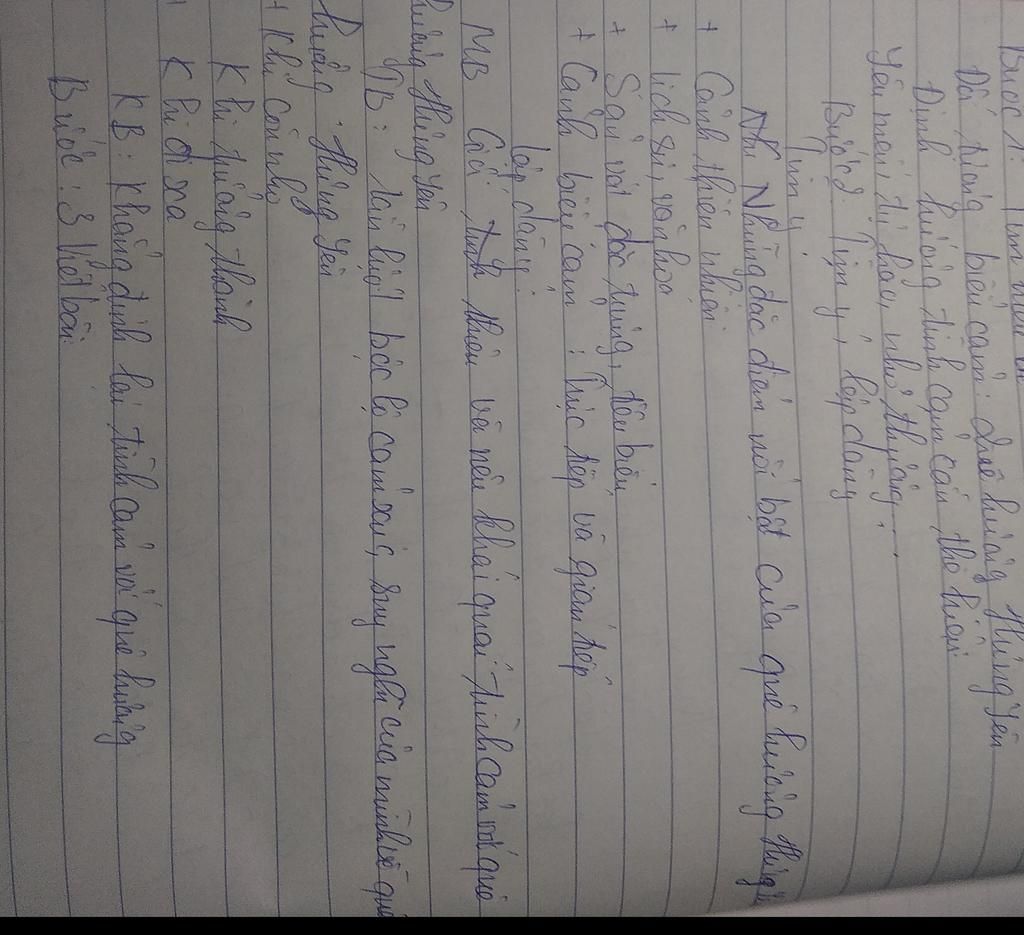 Bước 1: Tìm hiểu đề
Đối tượng biểu cảm: Quê hương Hưng Yên
Định hướng tình cảm cần thể hiện:
Yêu mến, tự hào, nhớ thương...
Bước 2: Tìm ý, lập dàng
Tìm ý.
Những đặc điểm nổi bật của quê hương Hưng
+ Cảnh thiên nhiên
+ lịch sử, văn hóa
+ Sản vật đặc trưng, tiêu biểu
+ Cảnh biểu cảm: Trực tiếp và gián tiếp
lập dàng:
MB Giới thiệu và nêu khái quát tình cảm với quê
hương Hưng Yên
TB: lần lượt bộc lộ cảm xúc, suy nghĩ của mình về quê
hương Hưng Yên
+ Khi còn nhỏ
Khi trưởng thành
+ Khi đi xa
KB: Khẳng định lại tình cảm với quê hương
Bước: 3 Viết bài